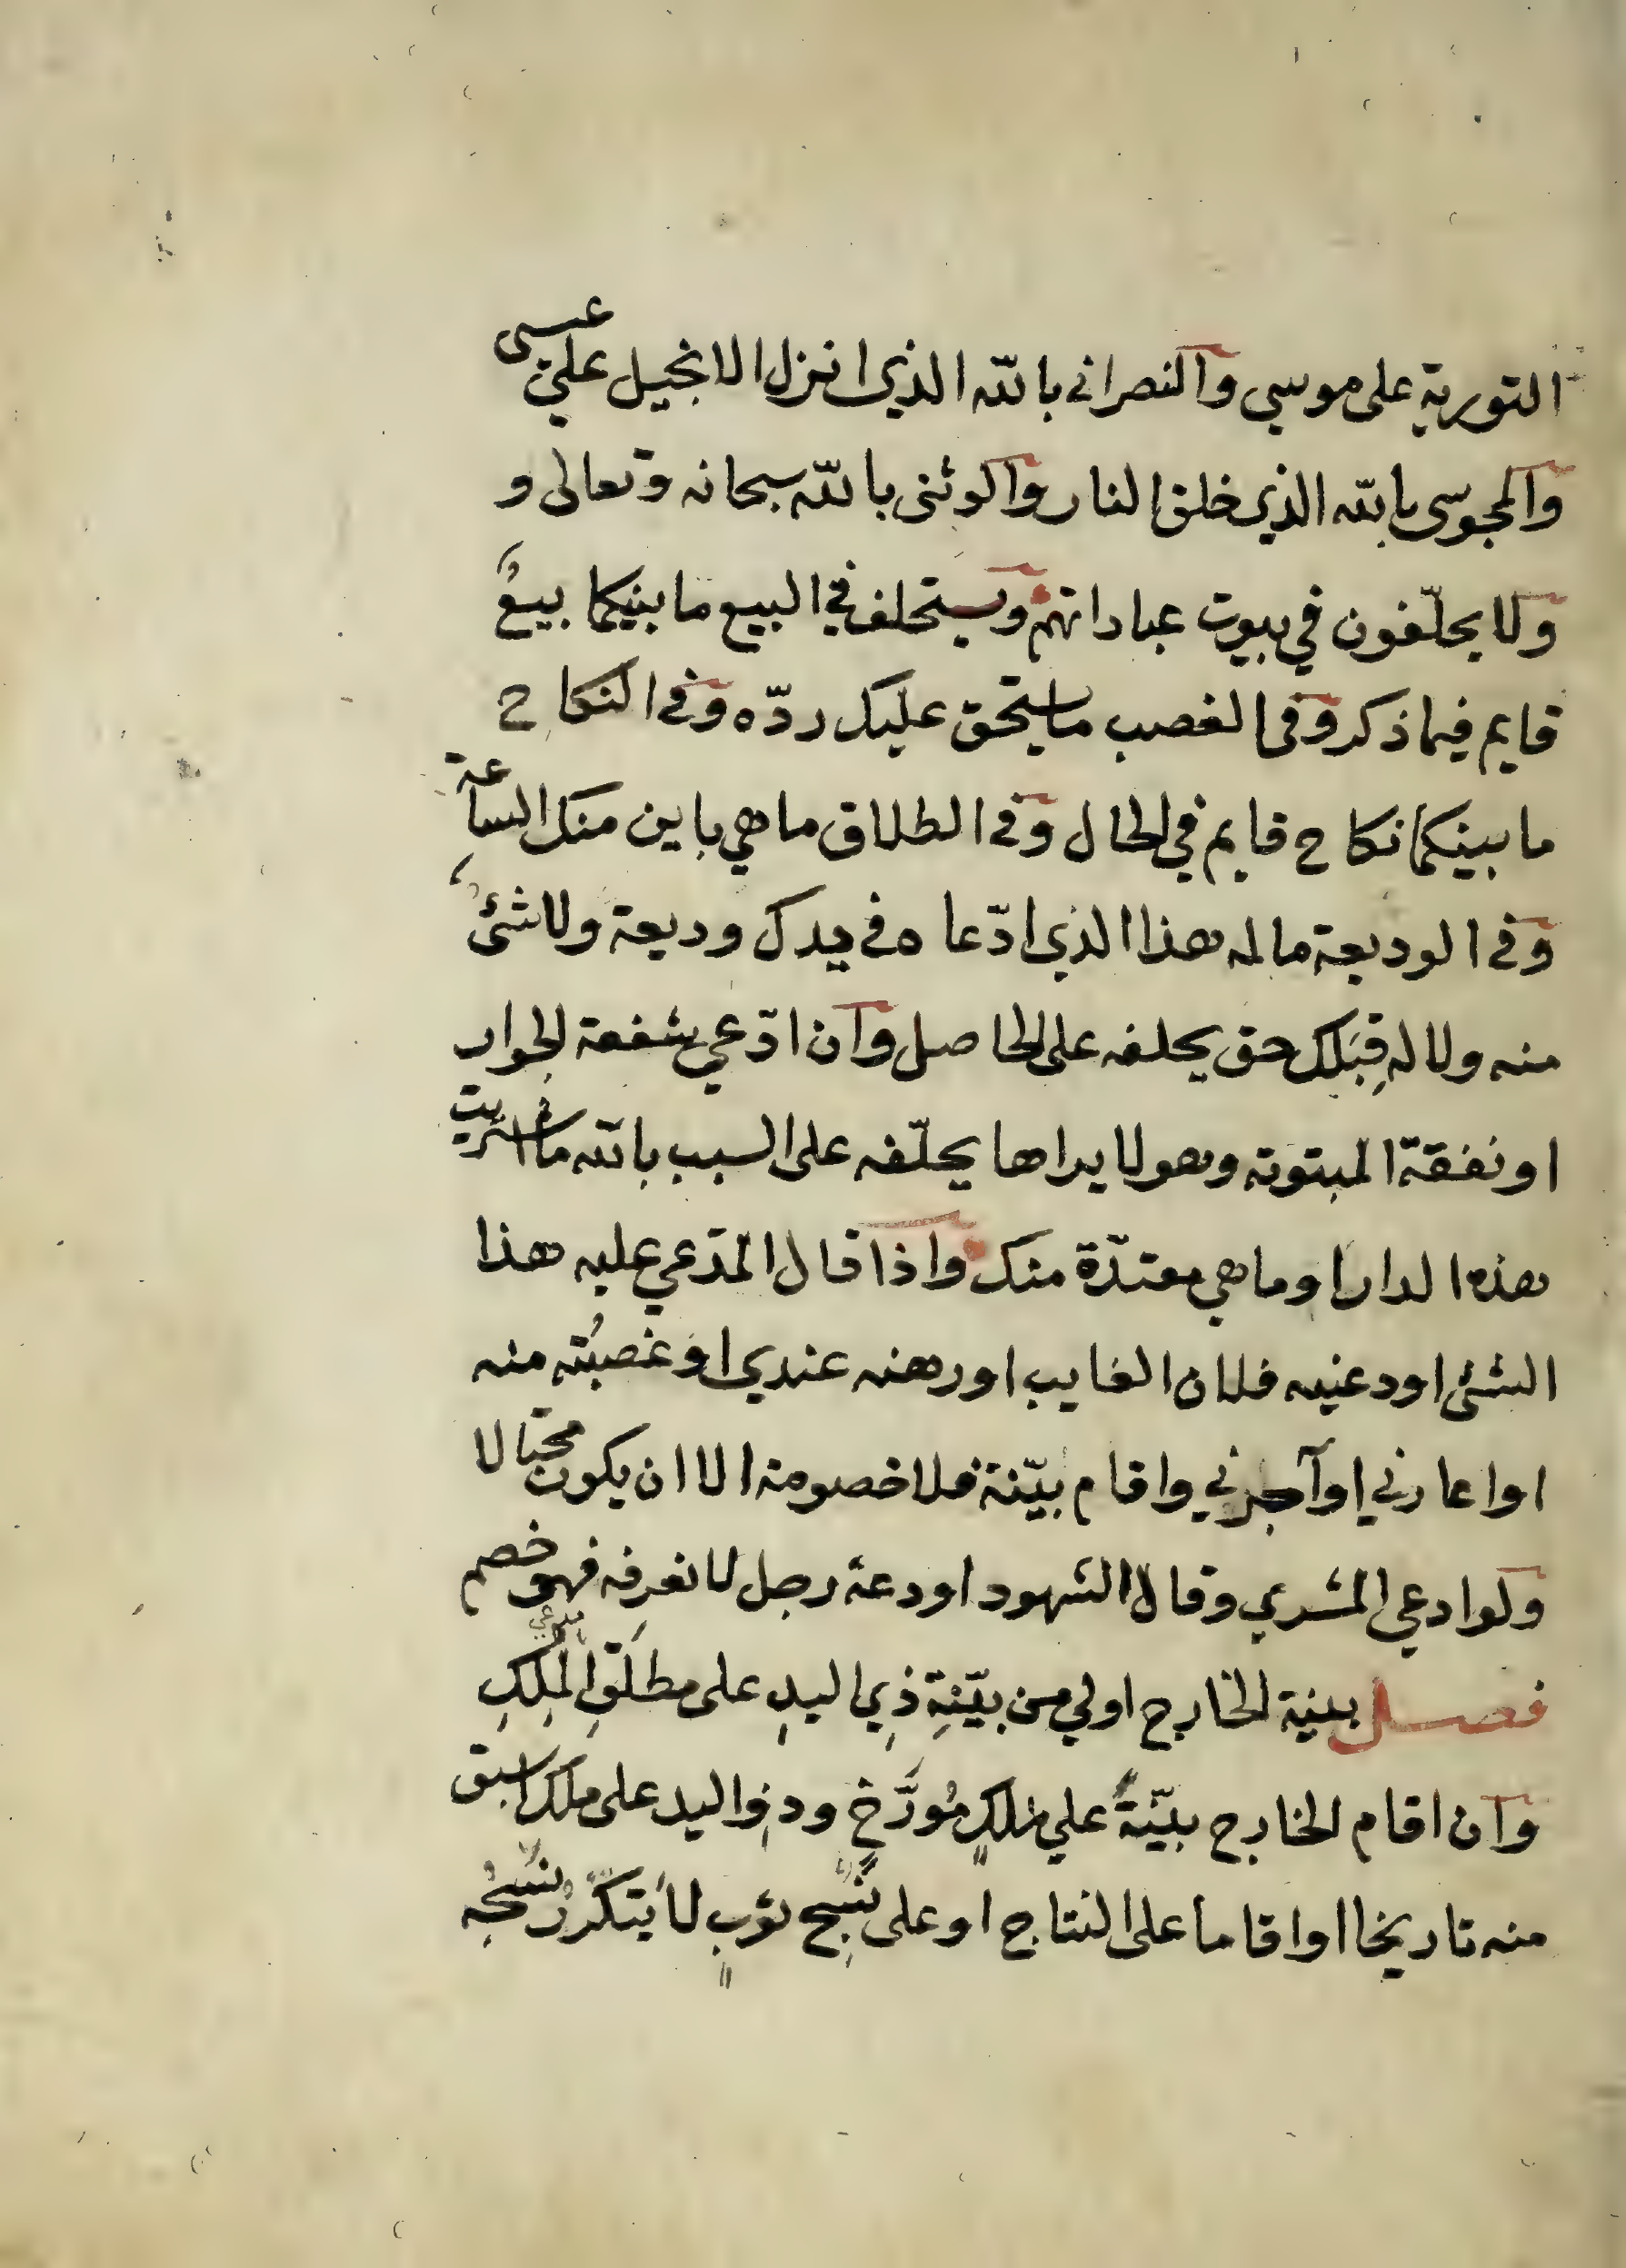 التورية على موسى والنصراني بالله الذي انزل الانجيل على عيسى
والمجوسى بالله الذي خلق النار والوثنى بالله سبحانه وتعالى و
ولا يحلّفون في بيوت عباداتهم ويستحلف في البيع ما بينكما بيعٌ
قايم فيما ذكر وفى الغصب ما يستحق عليك ردّه وفي النكاح
ما بينكما نكاح قايم في الحال وفي الطلاق ما هي باين منك الساعة
وفي الوديعة ما له هذا الذي ادّعاه في يدك وديعة ولا شئ
منه ولا له قِبَلك حق يحلفه على الحاصل وان ادّعي شفعة الجوار
او نفقة المبتوتة وهو لا يراها يحلّفه على السبب بالله ما اشتريت
هذه الدار او ما هي معتدّة منك واذا قال المدّعي عليه هذا
الشئ اودعنيه فلان الغايب او رهنه عندي او غصبتُه منه
او اعارني او آجرني واقام بيّنة فلا خصومة الا ان يكون محتالا
ولو ادعي المشري وقال الشهود اودعه رجل لا نعرفه فهو خصم
فصل بينة الخارج اولي من بيّنةِ ذِي اليدِ على مطلَقِ المِلكِ
وان اقام الخارج بيّنةً علي ملكٍ مُورَّخٍ وذوا اليد على ملك اسبق
منه تاريخا او اقاما على النتاج او على نسْجِ ثوبٍ لا يتكرّرُ نسْجُه